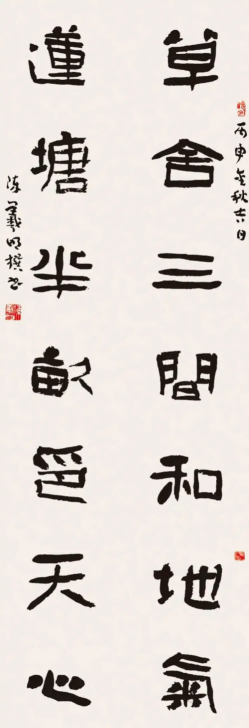 草舍三間和地氣
蓮塘半畝印天心
丙申年秋吉日
陈羲明撰書